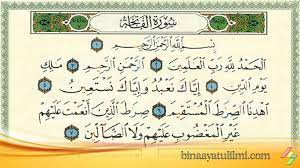 سُورَةُ الفَاتِحَةِ
بِسْمِ ٱللَّهِ ٱلرَّحْمَٰنِ ٱلرَّحِيمِ ١
ٱلْحَمْدُ لِلَّهِ رَبِّ ٱلْعَٰلَمِينَ ٢ ٱلرَّحْمَٰنِ ٱلرَّحِيمِ ٣ مَٰلِكِ
يَوْمِ ٱلدِّينِ ٤ إِيَّاكَ نَعْبُدُ وَإِيَّاكَ نَسْتَعِينُ ٥
ٱهْدِنَا ٱلصِّرَٰطَ ٱلْمُسْتَقِيمَ ٦ صِرَٰطَ ٱلَّذِينَ أَنْعَمْتَ عَلَيْهِمْ
غَيْرِ ٱلْمَغْضُوبِ عَلَيْهِمْ وَلَا ٱلضَّآلِّينَ ٧
binaayatulilmi.com